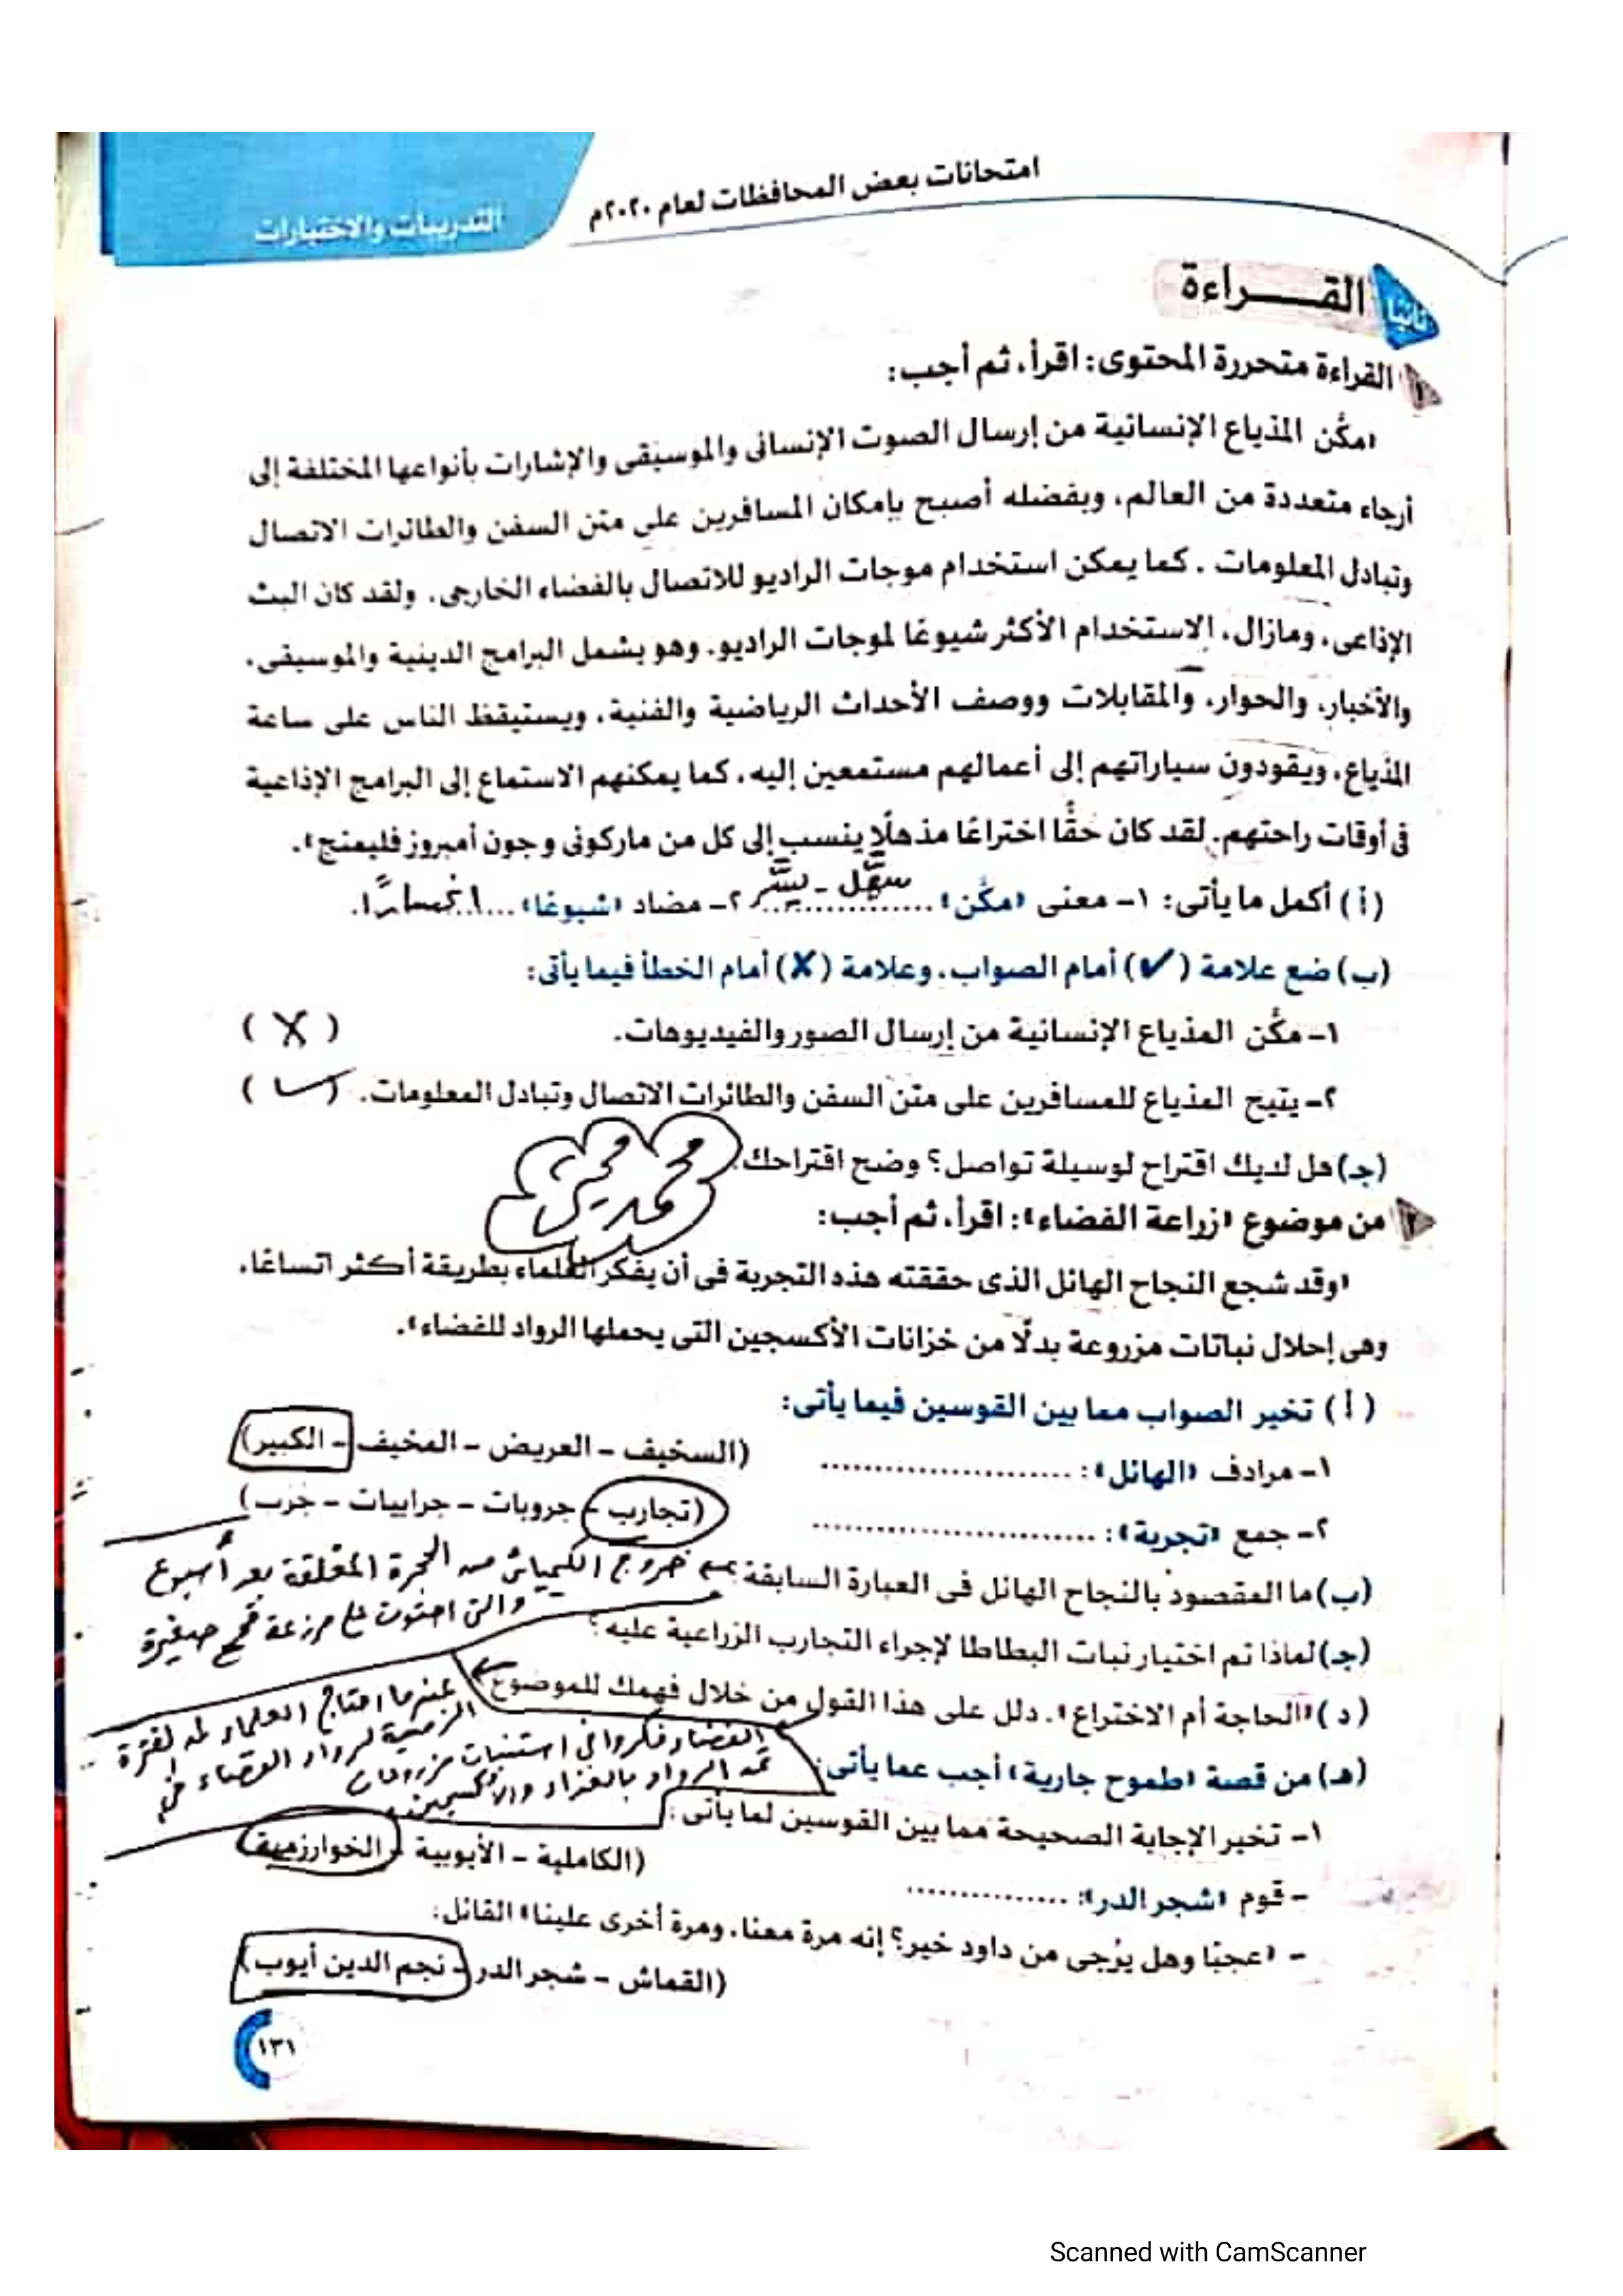 امتحانات بعض المحافظات لعام ٢٠٢٠م
التدريبات والاختبارات
ثانيًا
القـــراءة
١ القراءة متحررة المحتوى: اقرأ، ثم أجب:
«مكَّن المذياع الإنسانية من إرسال الصوت الإنسانى والموسيقى والإشارات بأنواعها المختلفة إلى
أرجاء متعددة من العالم، وبفضله أصبح بإمكان المسافرين على متن السفن والطائرات الاتصال
وتبادل المعلومات . كما يمكن استخدام موجات الراديو للاتصال بالفضاء الخارجى. ولقد كان البث
الإذاعى، ومازال، الاستخدام الأكثر شيوعًا لموجات الراديو. وهو يشمل البرامج الدينية والموسيقى،
والأخبار، والحوار، والمقابلات ووصف الأحداث الرياضية والفنية، ويستيقظ الناس على ساعة
المذياع، ويقودون سياراتهم إلى أعمالهم مستمعين إليه، كما يمكنهم الاستماع إلى البرامج الإذاعية
فى أوقات راحتهم. لقد كان حقًّا اختراعًا مذهلًا ينسب إلى كل من ماركونى وجون أمبروز فليمنج».
(أ) أكمل ما يأتى: ١- معنى «مكَّن» سهَّل - يسَّر ٢- مضاد «شيوعًا» انحسارًا.
(ب) ضع علامة (✓) أمام الصواب، وعلامة (✗) أمام الخطأ فيما يأتى:
١- مكَّن المذياع الإنسانية من إرسال الصور والفيديوهات. (✗)
٢- يتيح المذياع للمسافرين على متن السفن والطائرات الاتصال وتبادل المعلومات. (✓)
(جـ) هل لديك اقتراح لوسيلة تواصل؟ وضح اقتراحك.
محمد
٢ من موضوع «زراعة الفضاء»: اقرأ، ثم أجب:
«وقد شجع النجاح الهائل الذى حققته هذه التجربة فى أن يفكر العلماء بطريقة أكثر اتساعًا،
وهى إحلال نباتات مزروعة بدلًا من خزانات الأكسجين التى يحملها الرواد للفضاء».
(أ) تخير الصواب مما بين القوسين فيما يأتى:
١- مرادف «الهائل»: .......................... (السخيف - العريض - المخيف - الكبير)
٢- جمع «تجربة»: .............................. (تجارب - جروبات - جرابيات - جرب)
(ب) ما المقصود بالنجاح الهائل فى العبارة السابقة؟ خروج الكيميائى من الحجرة المغلقة بعد أسبوع
والتى احتوت على مزرعة قمح صغيرة
(جـ) لماذا تم اختيار نبات البطاطا لإجراء التجارب الزراعية عليه؟
(د) «الحاجة أم الاختراع». دلل على هذا القول من خلال فهمك للموضوع
عندما احتاج العلماء لمد الفترة
الزمنية لرواد الفضاء فى
الفضاء فكروا فى استنبات مزروعات
تمد الرواد بالغذاء والأكسجين.
(هـ) من قصة «طموح جارية» أجب عما يأتى:
١- تخير الإجابة الصحيحة مما بين القوسين لما يأتى:
- قوم «شجر الدر»: ................ (الكاملية - الأيوبية - الخوارزمية)
- «عجبًا وهل يُرجى من داود خير؟ إنه مرة معنا، ومرة أخرى علينا» القائل:
(القماش - شجر الدر - نجم الدين أيوب)
١٣١
Scanned with CamScanner